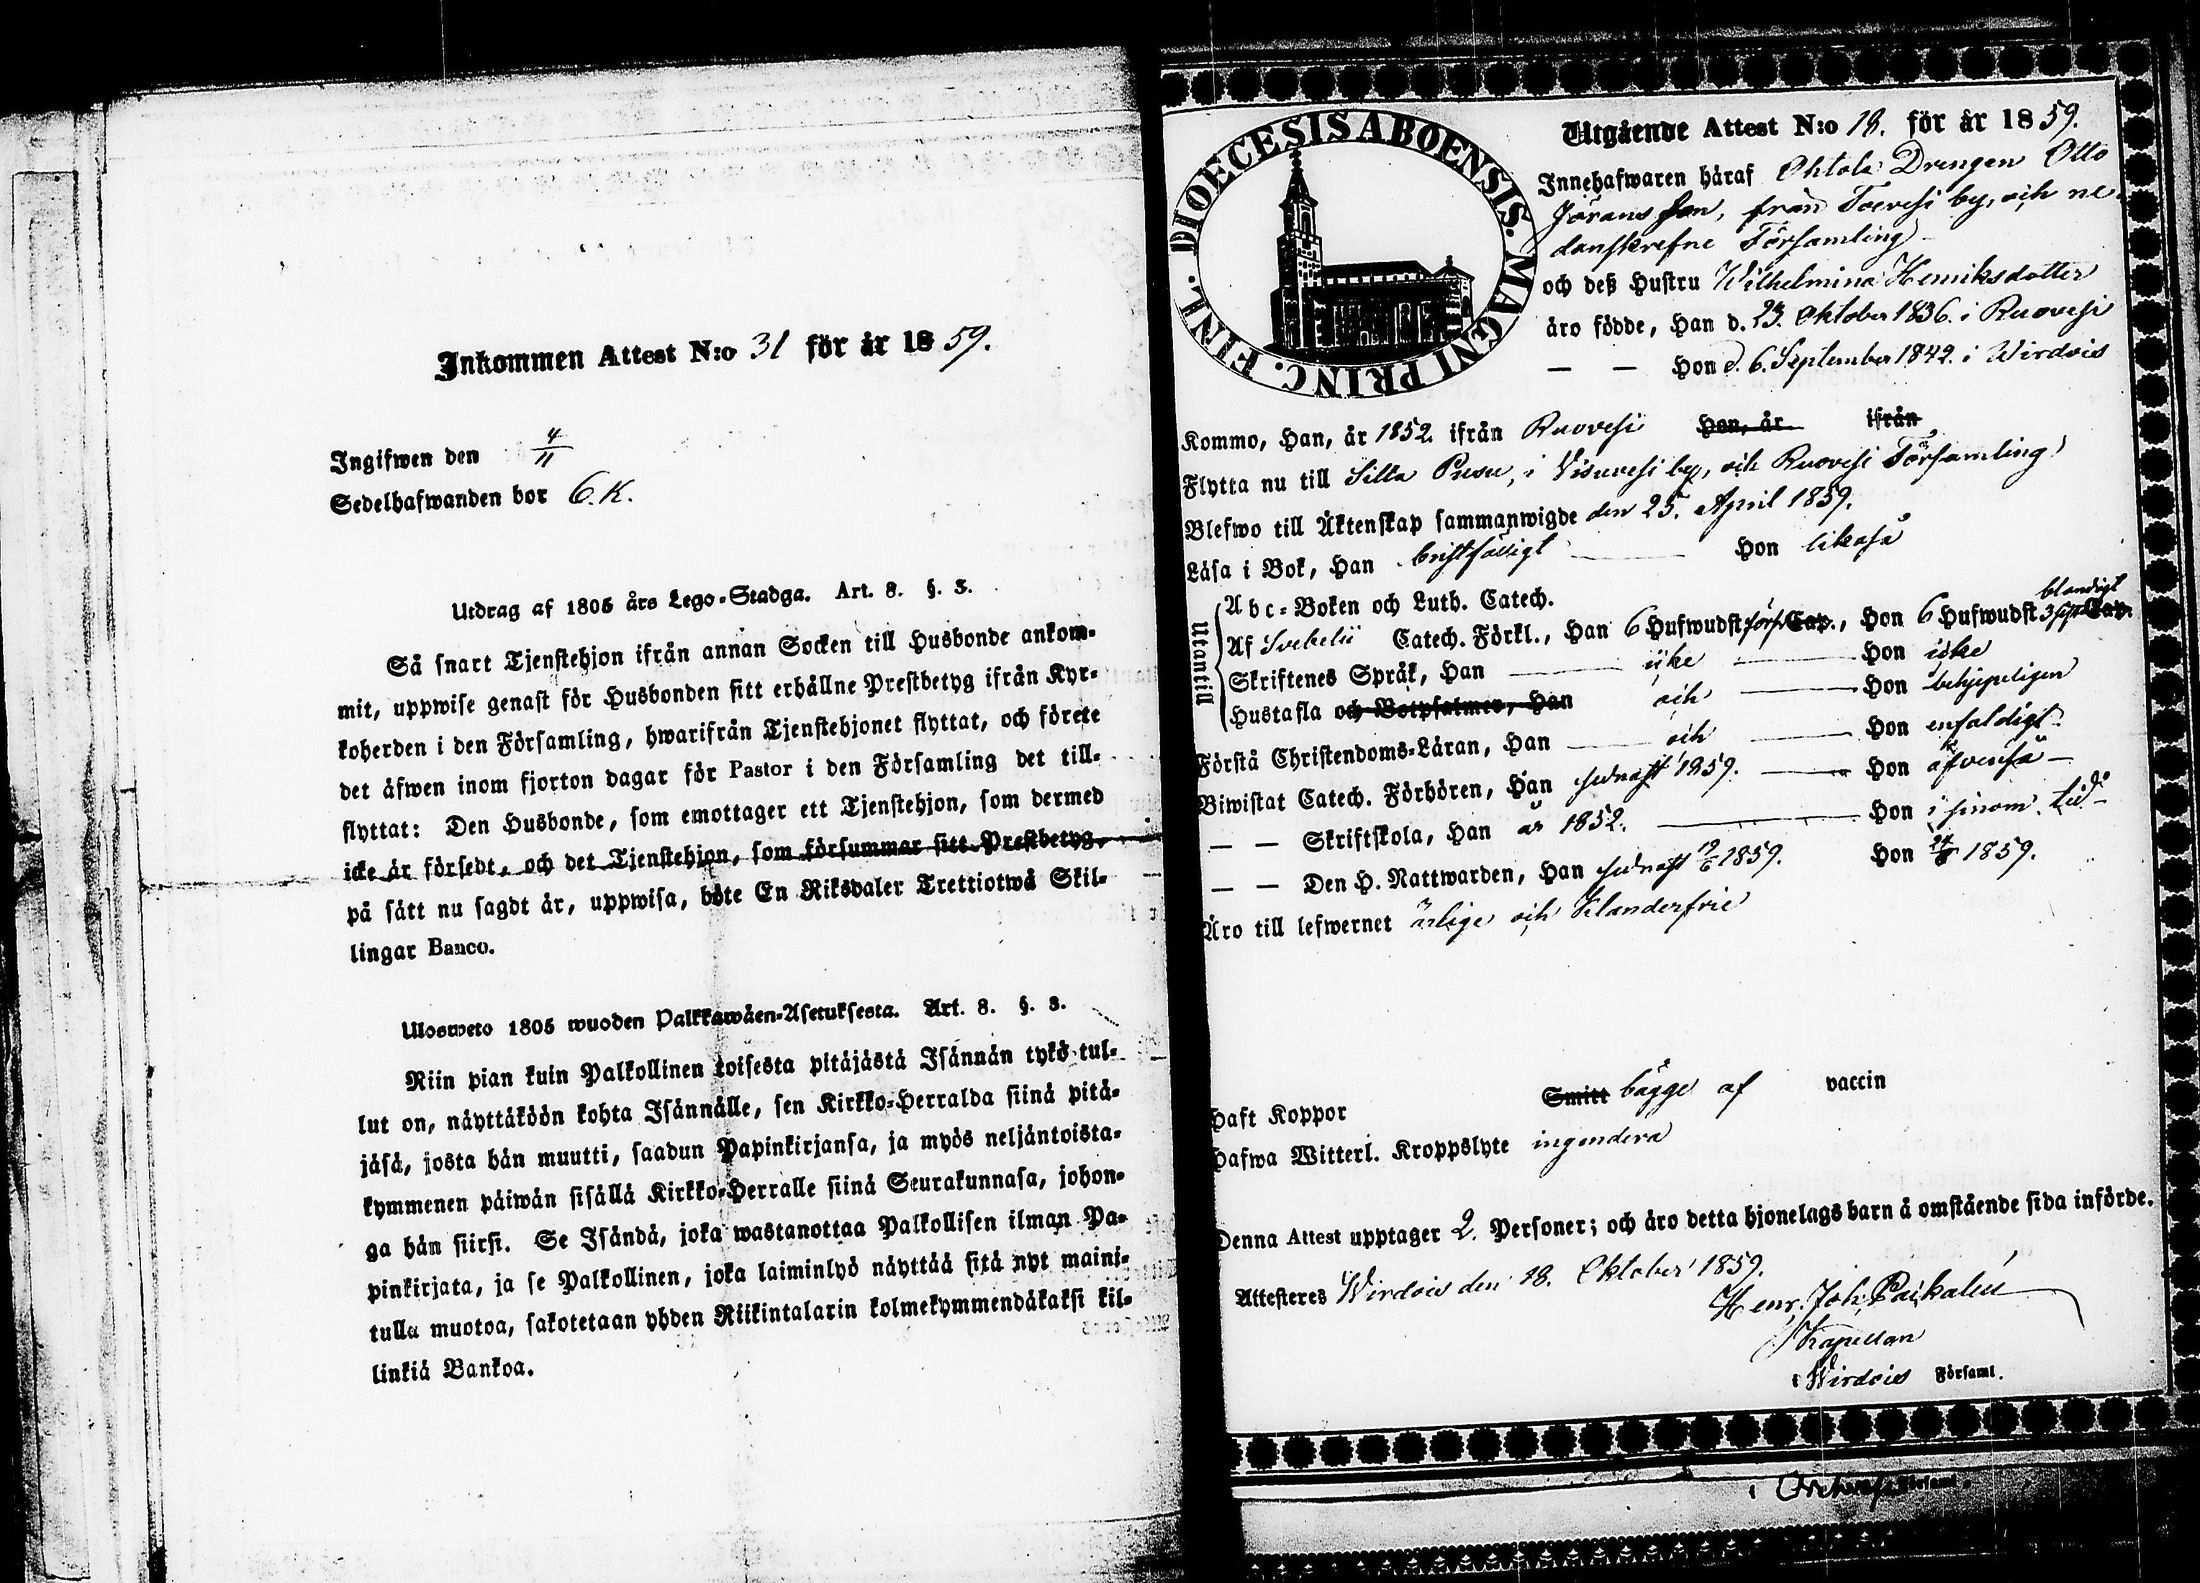 Inkommen Attest N:o 31 för år 1859.
Ingifwen den 4/11
Sedelhafwanden bor 6. K.
Utdrag af 1805 års Lego-Stadga. Art. 8. §. 3.
Så snart Tjenstehjon ifrån annan Socken till Husbonde ankom-
mit, uppwise genast för Husbonden sitt erhållne Prestbetyg ifrån Kyr-
koherden i den Församling, hwarifrån Tjenstehjonet flyttat, och förete
det äfwen inom fjorton dagar för Pastor i den Församling det till-
flyttat: Den Husbonde, som emottager ett Tjenstehjon, som dermed
icke är försedt, och det Tjenstehjon, som försummar sitt Prestbetyg,
på sätt nu sagdt är, uppwisa, böte En Riksdaler Trettiotwå Skil-
lingar Banco.
Ulosweto 1805 wuoden Palkkawäen-Asetuksesta. Art. 8. §. 3.
Niin pian kuin Palkollinen toisesta pitäjästä Isännän tykö tul-
lut on, näyttäköön kohta Isännälle, sen Kirkko-Herralda siinä pitä-
jäsä, josta hän muutti, saadun Papinkirjansa, ja myös neljäntoista-
kymmenen päiwän sisällä Kirkko-Herralle siinä Seurakunnasa, johon-
ga hän siirsi. Se Isändä, joka wastanottaa Palkollisen ilman Pa-
pinkirjata, ja se Palkollinen, joka laiminlyö näyttää sitä nyt maini-
tulla muotoa, sakotetaan yhden Riikintalarin kolmekymmendäkaksi kil-
linkiä Bankoa.
DIOECESIS ABOENSIS. MAGNI PRINC. FINL.
Utgående Attest N:o 18. för år 1859.
Innehafwaren häraf Ohtola Drengen Otto
Jöransson, från Toivesi by, och ne-
danskrefne Församling
och deß Hustru Wilhelmina Henriksdotter
äro födde, Han d. 23. Oktober 1836. i Ruovesi
— — Hon d. 6. September 1842. i Wirdois
Kommo, Han, år 1852. ifrån Ruovesi Hon, år ifrån
Flytta nu till Silta Pusu, i Visuvesi by, och Ruovesi Församling
Blefwo till Äktenskap sammanwigde den 25. April 1859.
Läsa i Bok, Han bristfälligt Hon likaså
Utantill
Abc-Boken och Luth. Catech.
Af Svebelii Catech. Förkl., Han 6 Hufwudst. Cap., Hon 6 Hufwudst. 3 Cap. blandigt
Skriftenes Språk, Han icke Hon icke
Hustafla och Botpsalmer, Han och Hon behjepeligen
Förstå Christendoms-Läran, Han och Hon enfaldigt
Biwistat Catech. Förhören, Han sednast 1859. Hon äfvenså —
— — Skriftskola, Han år 1852. Hon i sinom tid
— — Den H. Nattwarden, Han sednast 19/6 1859. Hon 1859.
Äro till lefwernet ärlige och klanderfrie
Haft Koppor Smitt bägge af vaccin
Hafwa Witterl. Kroppslyte ingendera
Denna Attest upptager 2. Personer; och äro detta hjonelags barn å omstående sida införde.
Attesteras Wirdois den 18. Oktober 1859.
Henr. Joh.
Kapellan
i Wirdois Församl.
i Församl.